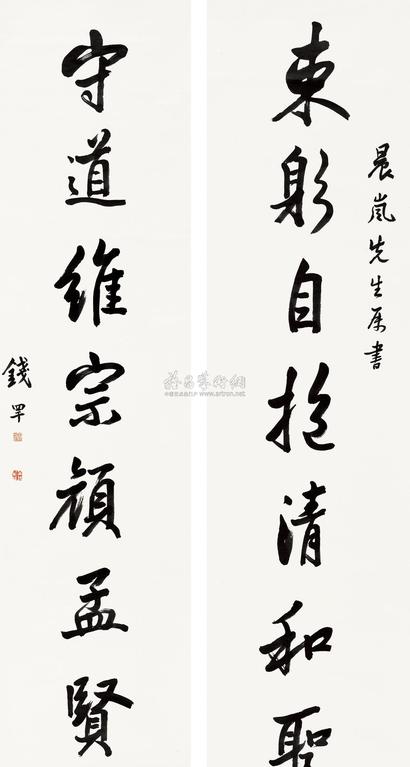 晨嵐先生属書
束躬自抱清和聖
守道維宗顏孟賢
錢罕
雅昌藝術網
www.artron.net